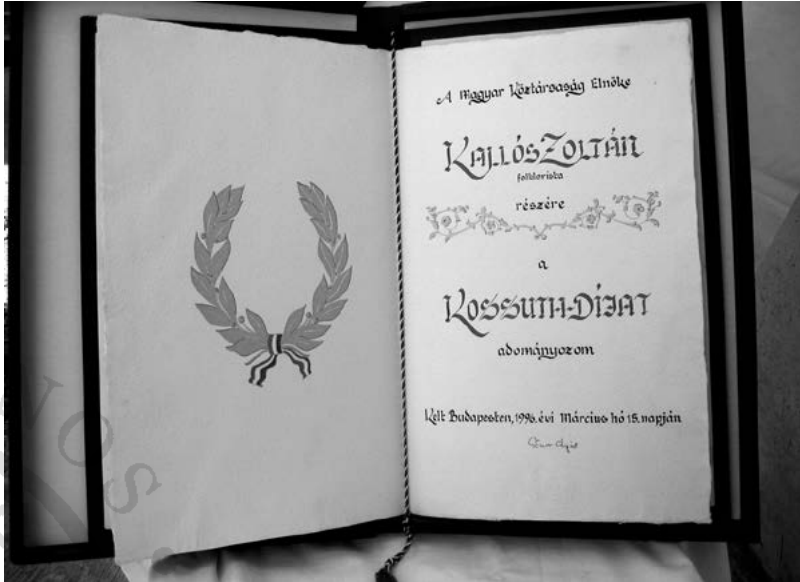 A Magyar Köztársaság Elnöke
KALLÓS ZOLTÁN
folklorista
részére
a
KOSSUTH-DÍJAT
adományozom
Kelt Budapesten, 1996. évi Március hó 15. napján
NOS